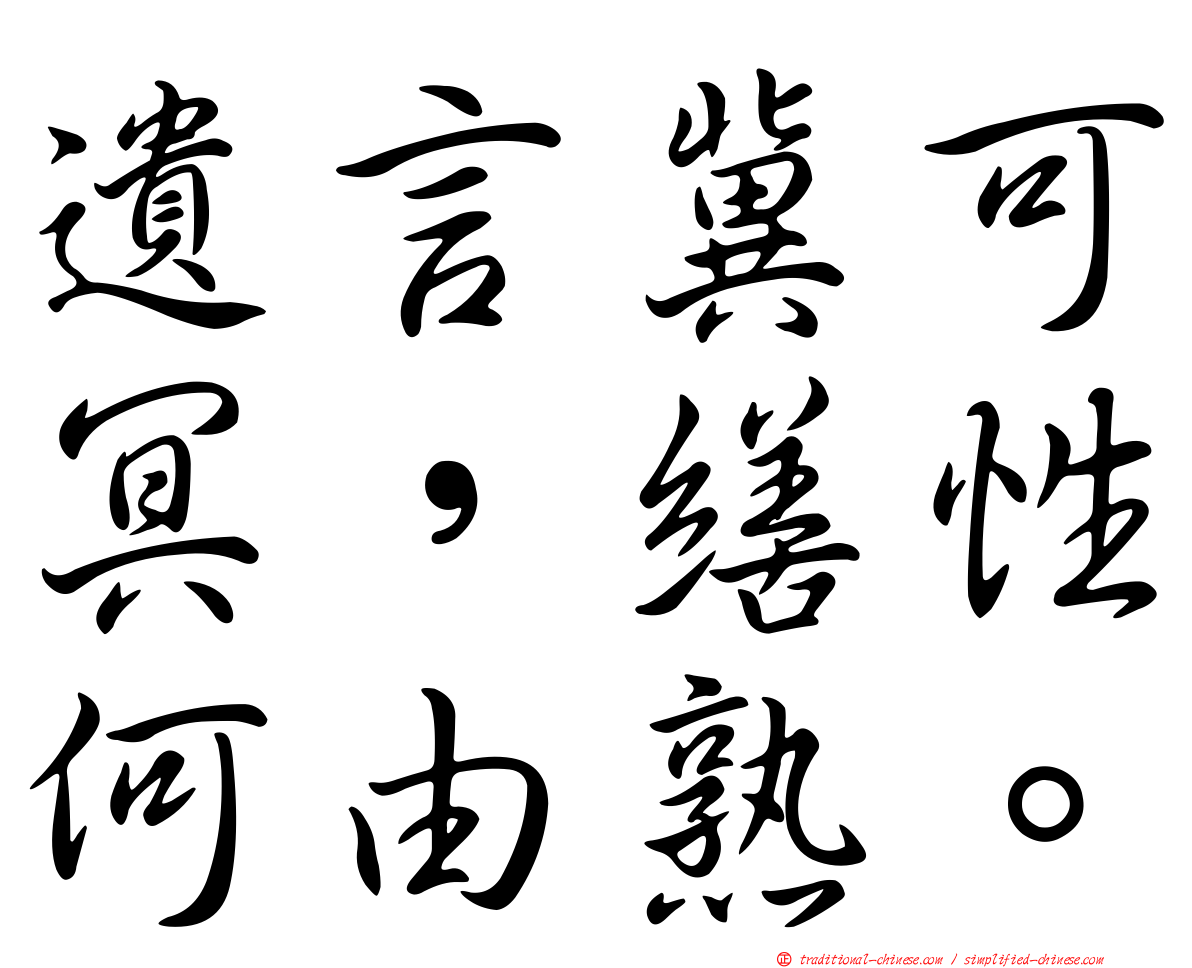 遺言冀可
冥，繕性
何由熟。
正 traditional-chinese.com / simplified-chinese.com